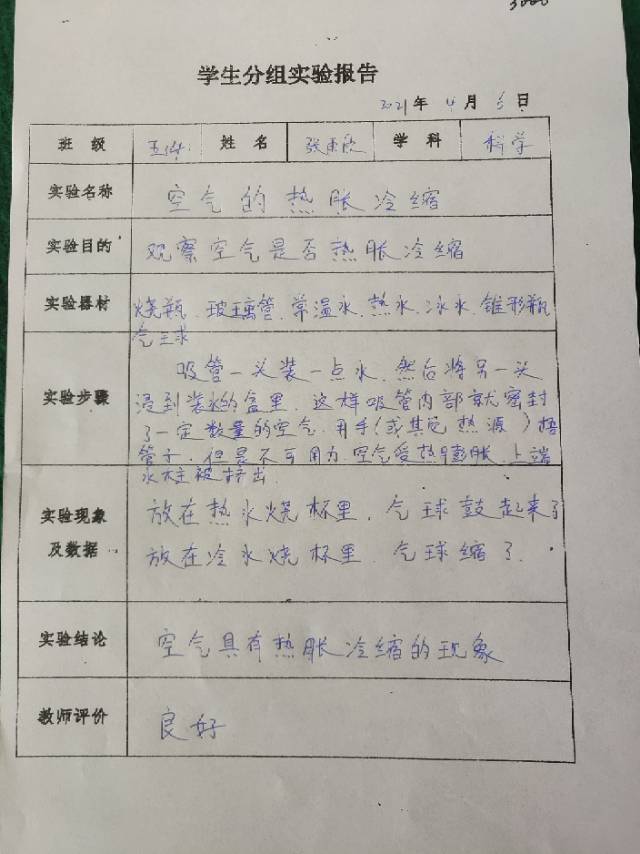 3000
学生分组实验报告
2021年 4月 5日
班 级 五(4) 姓 名 张 学 科 科学
实验名称 空气的热胀冷缩
实验目的 观察空气是否热胀冷缩
实验器材 烧瓶、玻璃管、常温水、热水、冰水、锥形瓶
气球
吸管一头装一点水，然后将另一头
实验步骤 浸到装水的盒里，这样吸管内部就密封
了一定数量的空气，用手(或其他热源)捂
管子，但是不可用力，空气受热膨胀，上端
水柱被挤出.
放在热水烧杯里，气球鼓起来了
实验现象
及数据 放在冷水烧杯里，气球缩了.
实验结论 空气具有热胀冷缩的现象
教师评价 良好